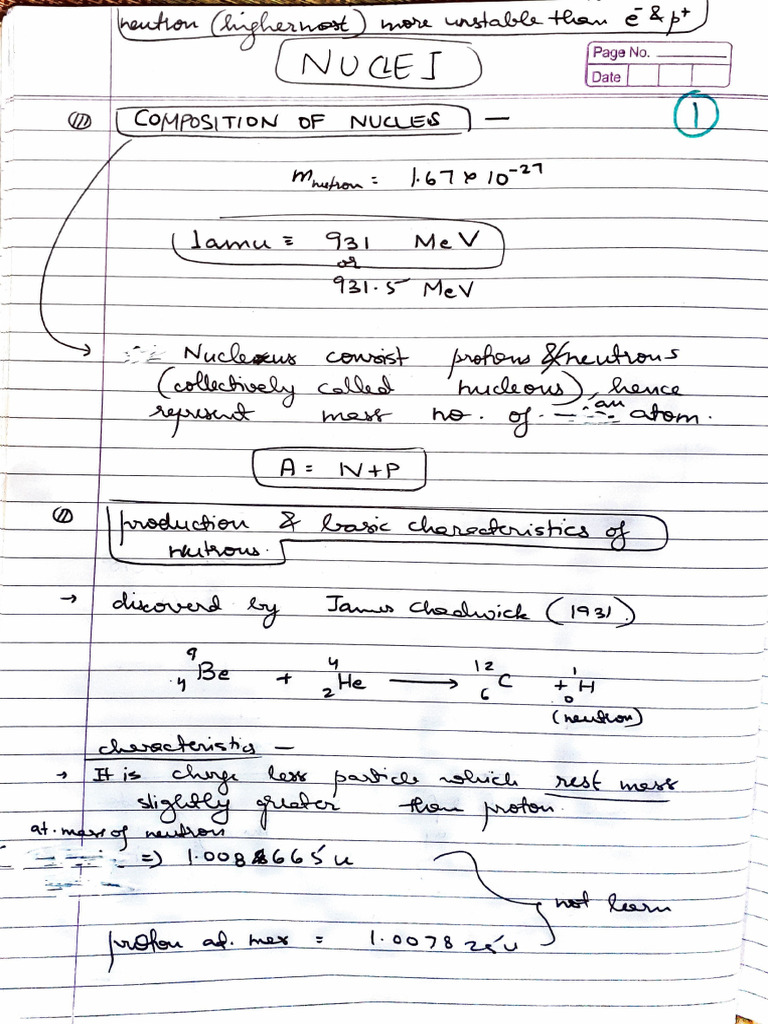 neutron (highermost) more unstable than e⁻ & p⁺
NUCLEI
Page No.
Date
COMPOSITION OF NUCLEUS —
1
mneutron = 1.67 × 10⁻²⁷
1amu = 931 MeV
or
931.5 MeV
→ Nucleus consist protons & neutrons
(collectively called nucleous), hence
represent mass no. of an atom.
A = N+P
production & basic characteristics of
nutrons.
→ discoverd by James Chadwick (1931)
⁹₄Be + ⁴₂He ⟶ ¹²₆C + ¹₀H
(neutron)
characteristics —
→ It is charge less particle which rest mass
slightly greater than proton.
at. mass of neutron
=> 1.008665 u
not learn
proton at. mas = 1.007825u